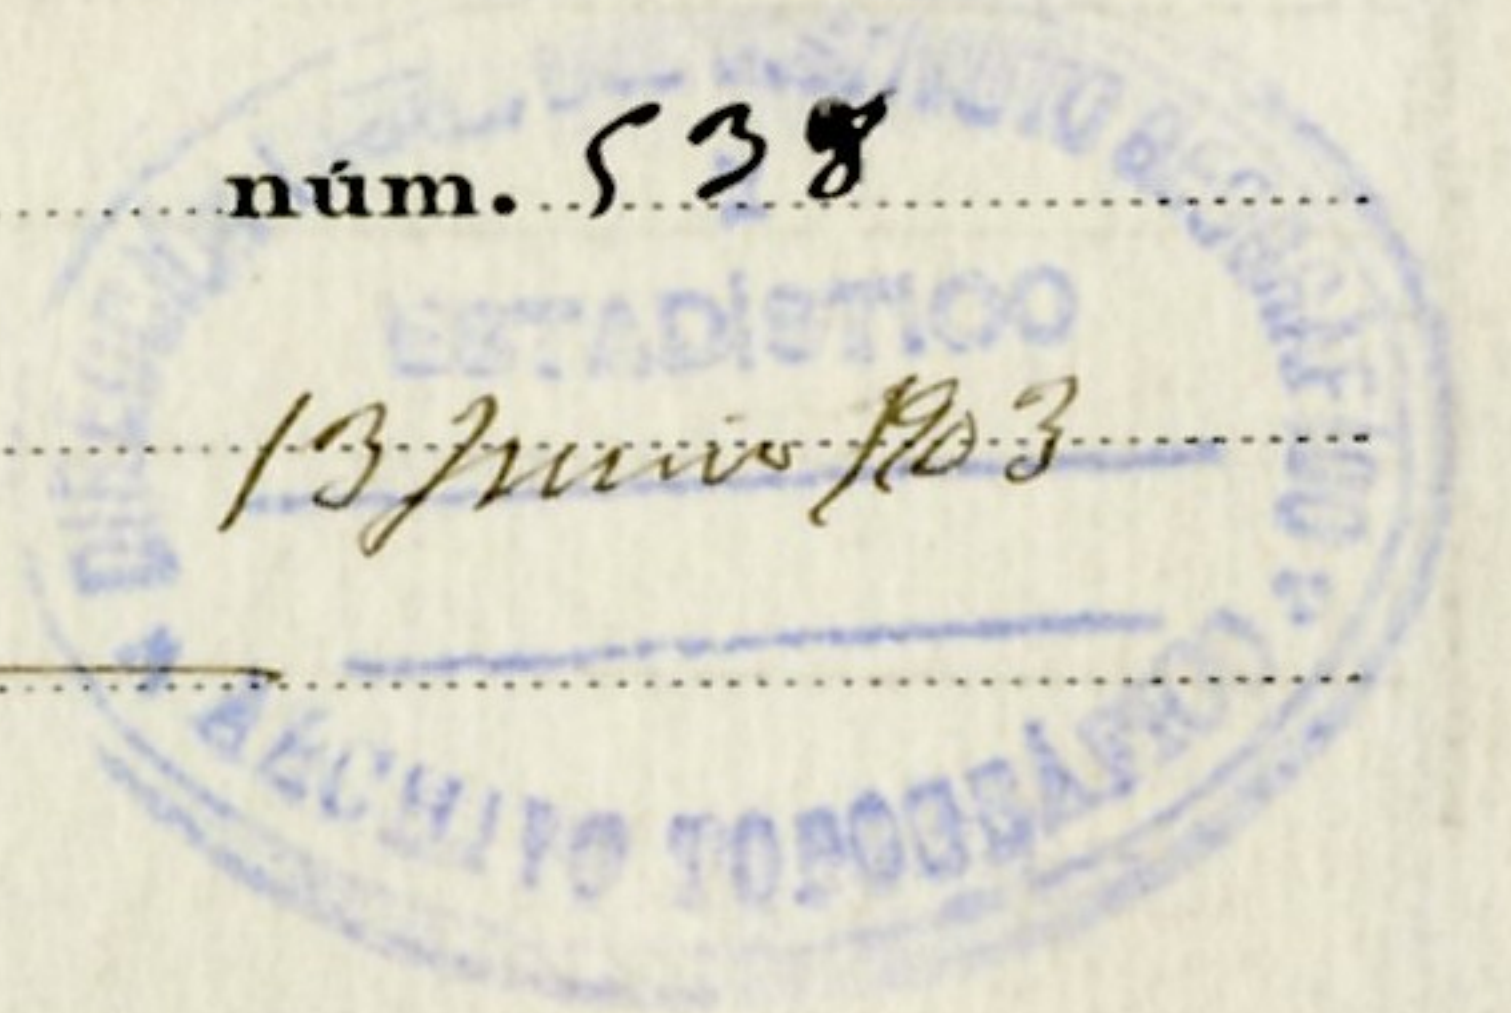 DIRECCIÓN GRAL. DEL INSTITUTO GEOGRÁFICO
núm. 538
Y
ESTADÍSTICO
13 Junio 1903
ARCHIVO TOPOGRÁFICO